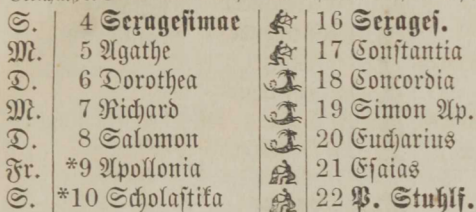 S. 4 Sexagesimae 16 Sexages.
M. 5 Agathe 17 Constantia
D. 6 Dorothea 18 Concordia
M. 7 Richard 19 Simon Ap.
D. 8 Salomon 20 Eucharius
Fr. *9 Apollonia 21 Esaias
S. *10 Scholastika 22 P. Stuhlf.